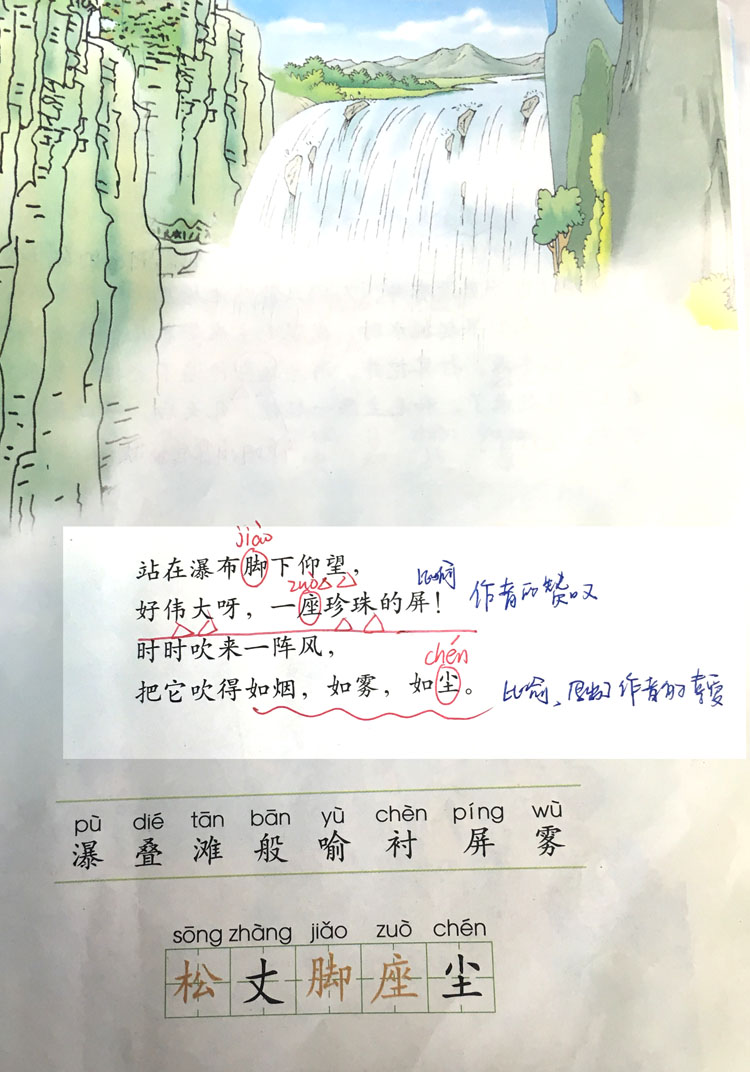 jiào
站在瀑布脚下仰望，
zuò
比喻
好伟大呀，一座珍珠的屏！ 作者的赞叹
时时吹来一阵风，
chén
把它吹得如烟，如雾，如尘。 比喻、 作者的喜爱
pù dié tān bān yù chèn píng wù
瀑 叠 滩 般 喻 衬 屏 雾
sōng zhàng jiǎo zuò chén
松 丈 脚 座 尘